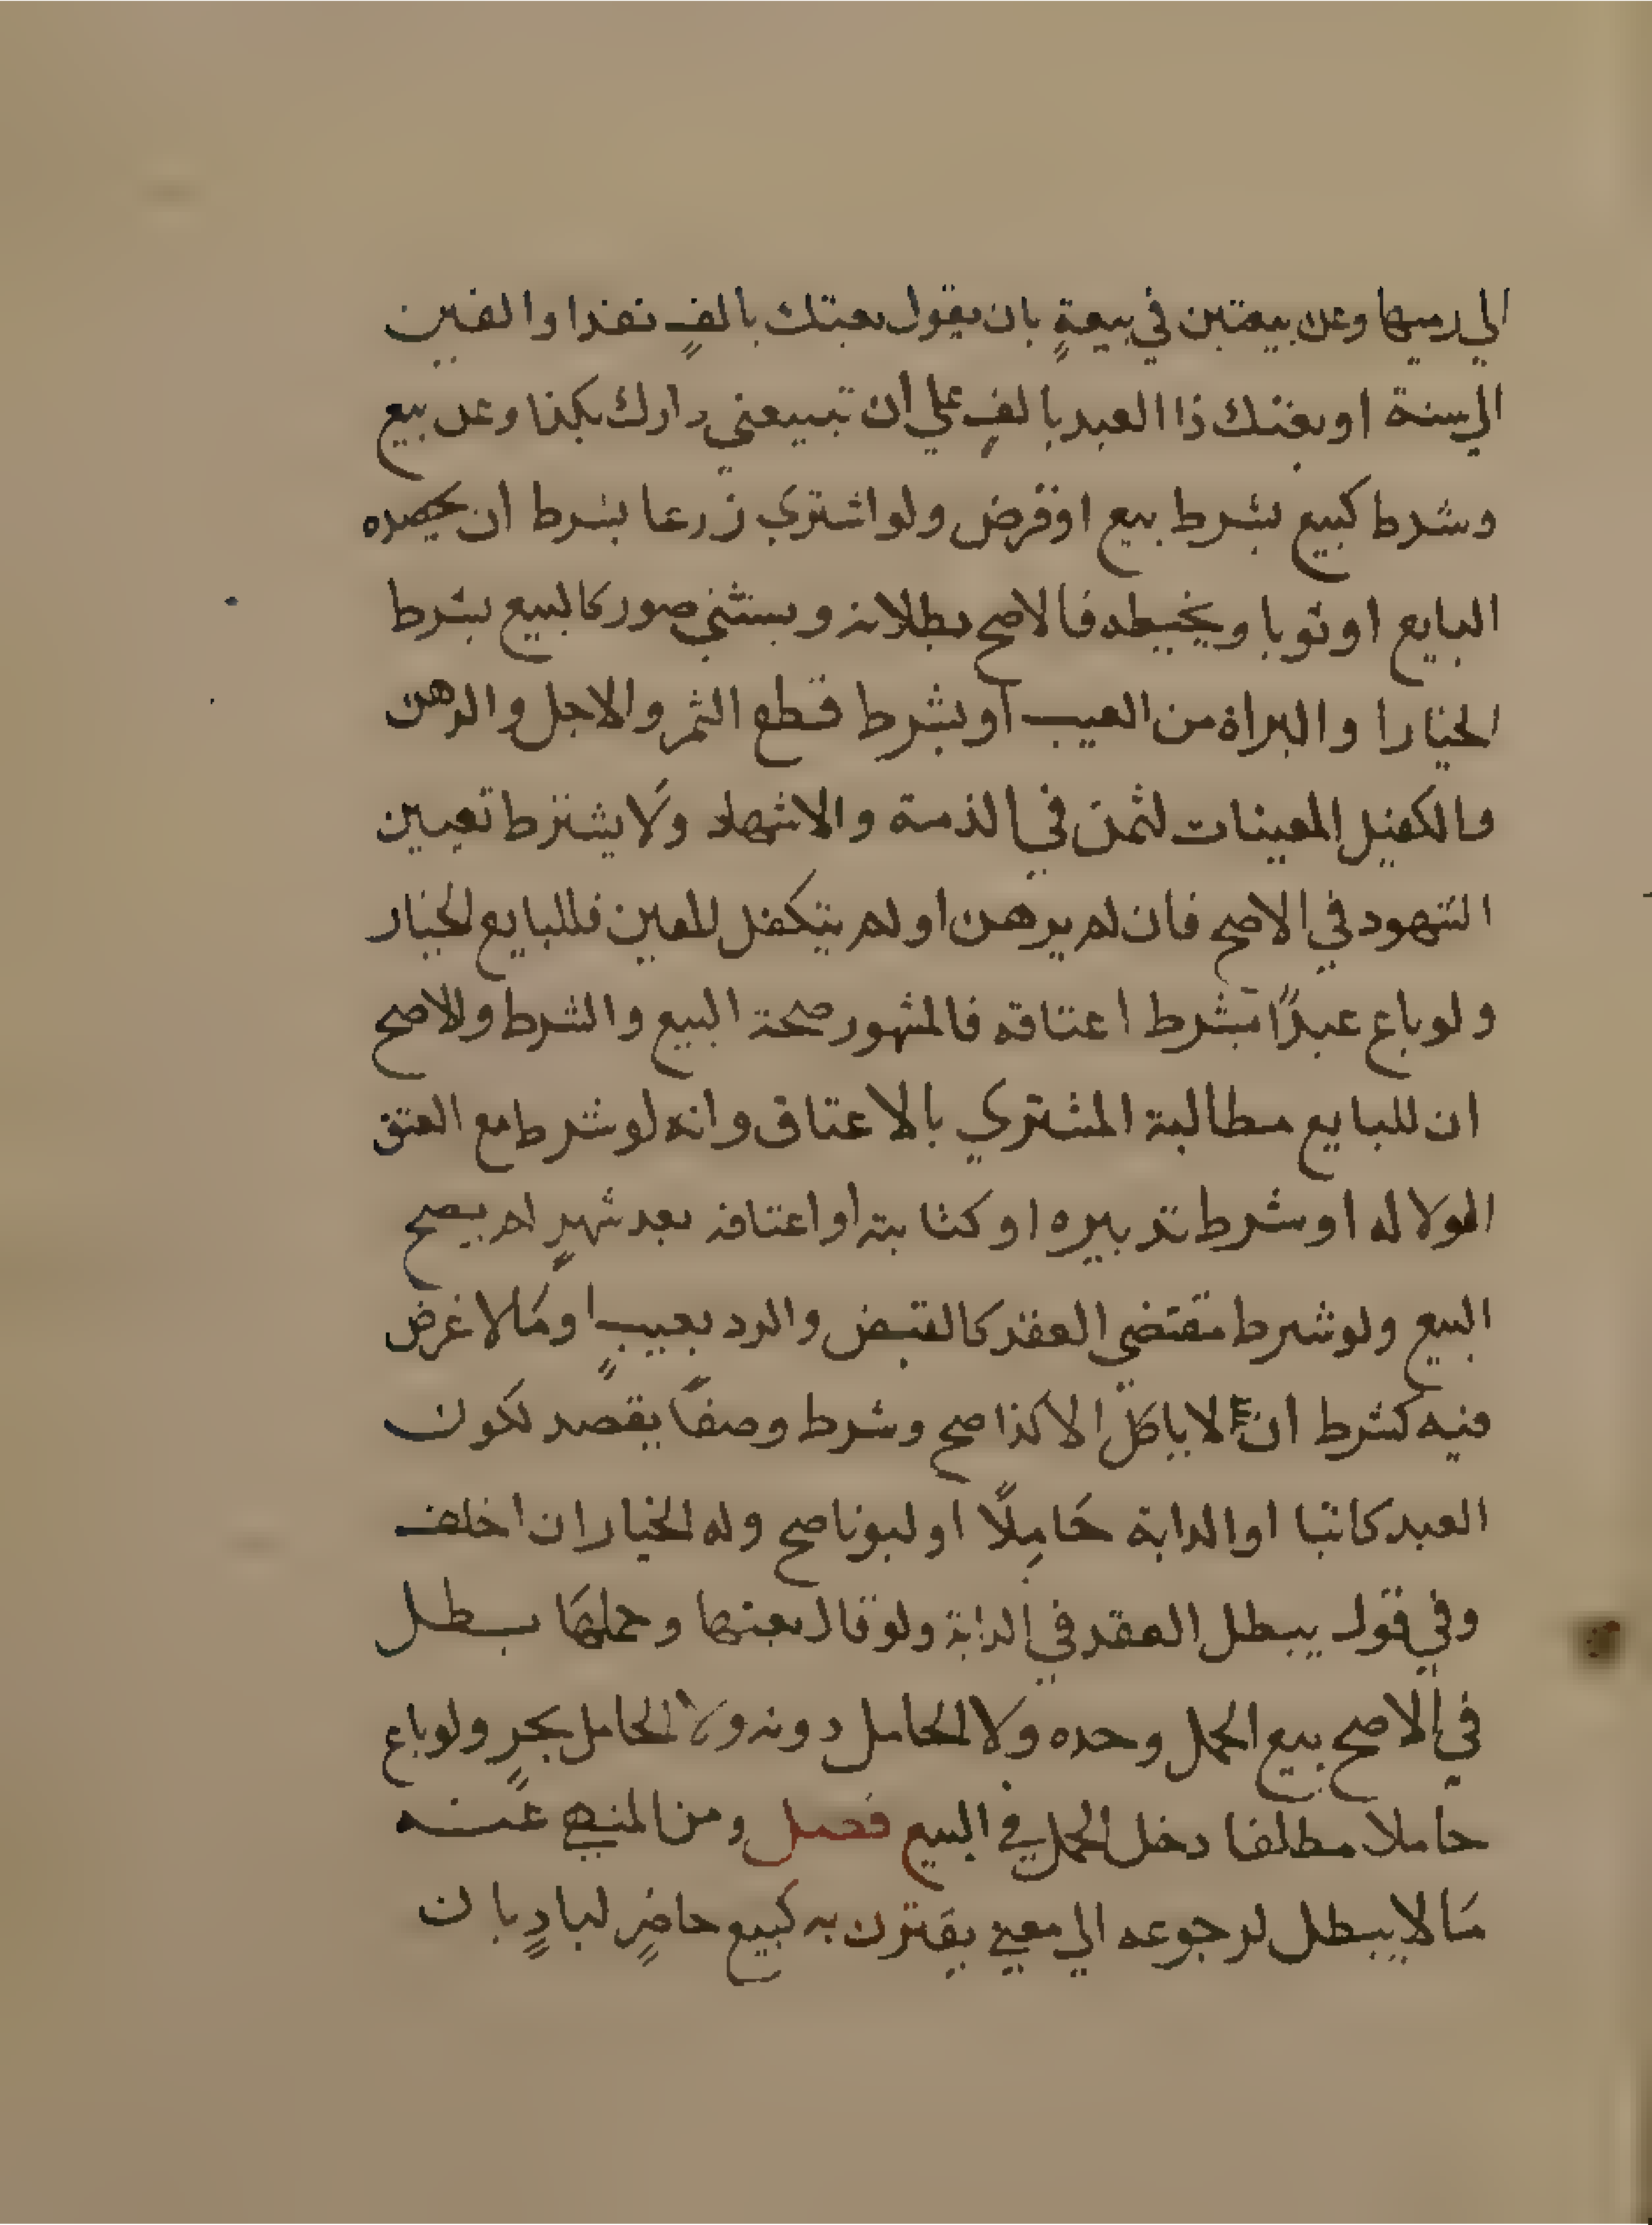 الي رميها وعن بيعتين في بيعةٍ بان يقول بعتك بالفٍ نقدا والفين
الي سنة او بعتك ذا العبد بالفٍ علي ان تبيعني دارك بكذا وعن بيع
وشرط كبيع بشرط بيع او قرض ولو اشتري زرعا بشرط ان يحصده
البايع او ثوبا ويخيطه فالاصح بطلانه ويستثني صور كالبيع بشرط
الخيار او البراة من العيب او بشرط قطع الثمر والاجل والرهن
والكفيل المعينات لثمن في الذمة والاشهاد ولا يشترط تعيين
الشهود في الاصح فان لم يرهن او لم يتكفل المعين فللبايع الخيار
ولو باع عبدًا بشرط اعتاقه فالمشهور صحة البيع والشرط والاصح
ان للبايع مطالبة المشتري بالاعتاق وانه لو شرط مع العتق
الولا له او شرط تدبيره او كتابته او اعتاقه بعد شهرٍ لم يصح
البيع ولو شرط مقتضي العقد كالقبض والرد بعيبٍ او مَا لا غرض
فيه كشرط ان لا ياكل الا كذا صح وشرط وصفًا يقصد لكون
العبد كاتبا او الدابة حَامِلًا او لبونا صح وله الخيار ان اخلف
وفي قول يبطل العقد في الدابة ولو قال بعتها وحملهَا بطل
في الاصح بيع الحمل وحده ولا الحامل دونه ولا الحامل بحرٍ ولو باع
حاملا مطلقا دخل الحمل في البيع فصل ومن المنهي عَنه
مَا لا يبطل لرجوعه الي معني يقترن به كبيع حاضرٍ لبادٍ بان